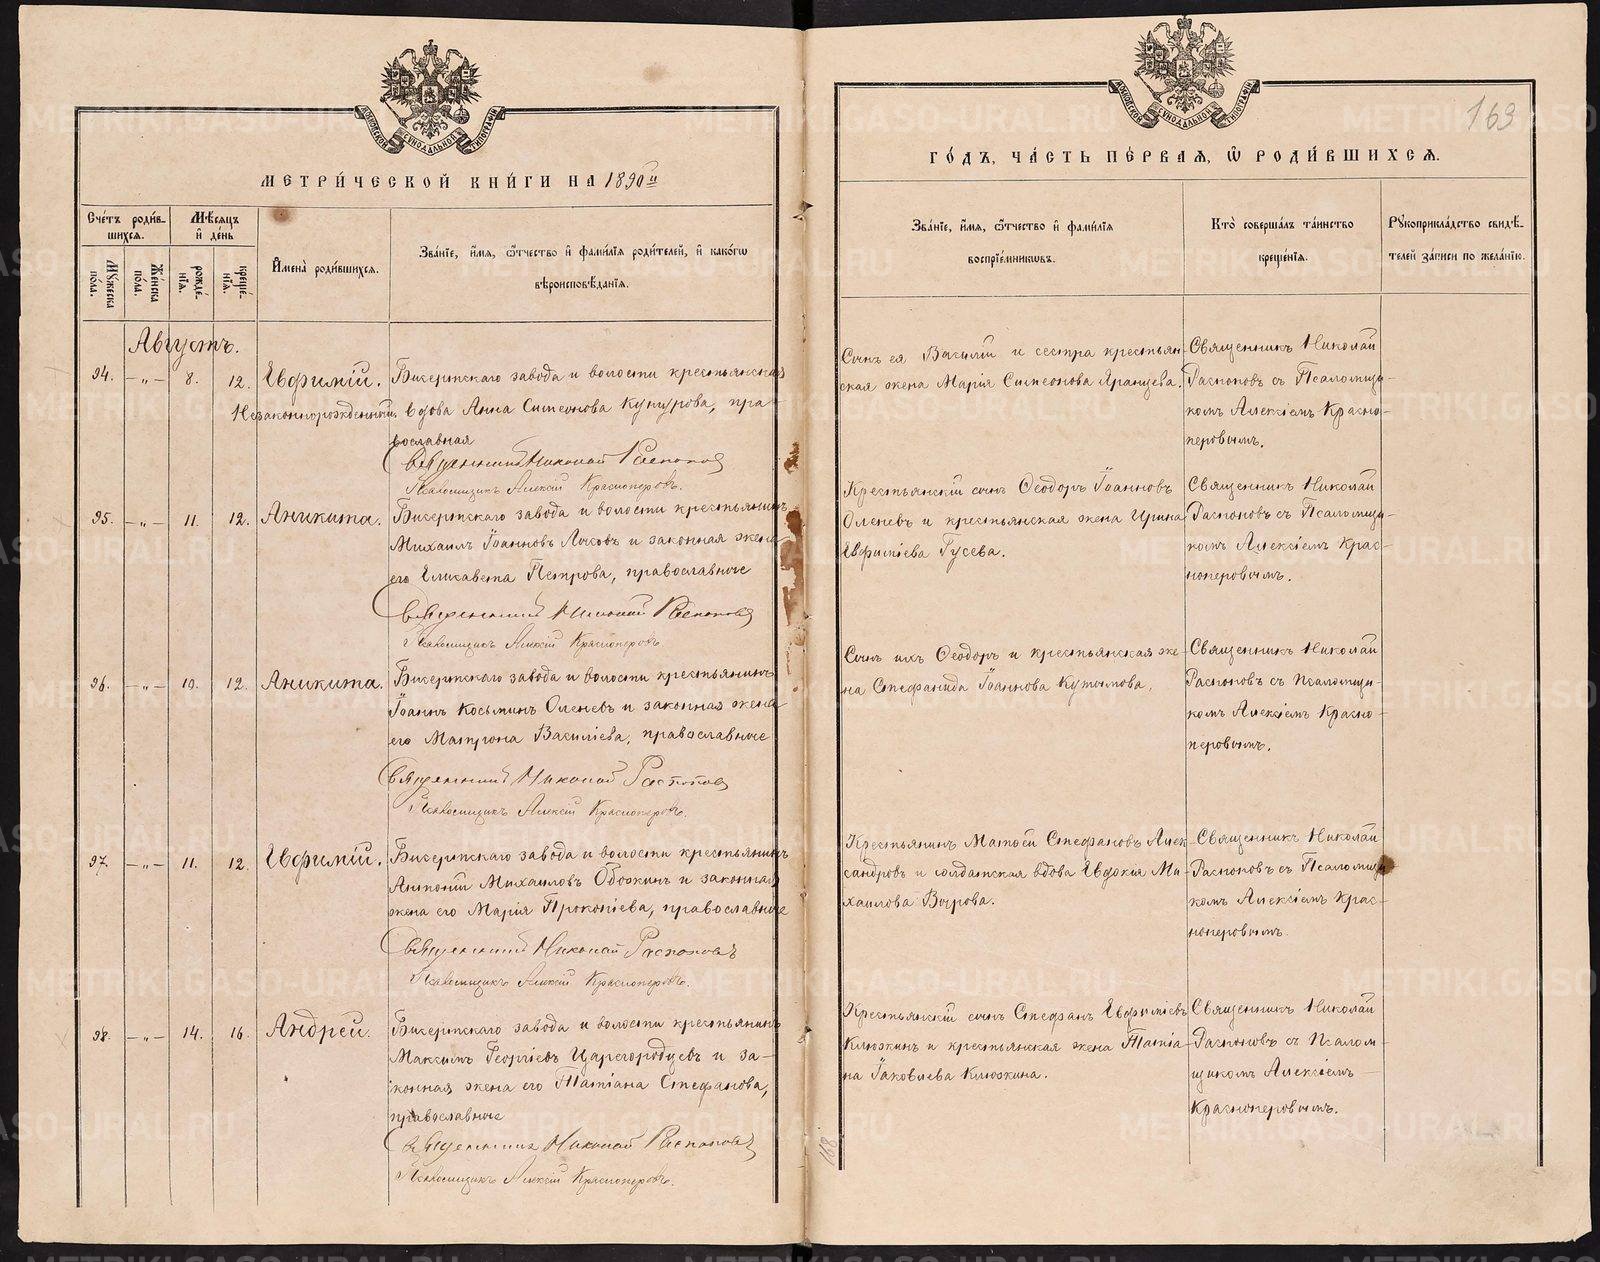 МОСКОВСКОЙ СѴНОДАЛЬНОЙ ТИПОГРАФІИ
МЕТРИ́ЧЕСКОЙ КНИ́ГИ НА 1890й
Сче́тъ роди́в-
шихся.
Мѣ́сяцъ
и҆ де́нь
Мꙋ́жеска по́ла.
Же́нска по́ла.
рожде́-нїѧ.
креще́-нїѧ.
И҆мена̀ роди́вшихсѧ.
Зва́нїе, и҆́мѧ, ѻ҆́тчество и҆ фами́лїѧ роди́телей, и҆ како́гѡ
вѣроисповѣ́данїѧ.
Августъ.
94. — „ — 8. 12. Евфимій. Бисертскаго завода и волости крестьянская
Незаконнорожденный. вдова Анна Симеонова Кунгурова, пра-
вославная
Священникъ Николай Распоповъ
Псаломщикъ Алексій Красноперовъ.
95. — „ — 11. 12. Аникита. Бисертскаго завода и волости крестьянинъ
Михаилъ Іоанновъ и законная жена
его Елисавета Петрова, православные
Священникъ Николай Распоповъ
Псаломщикъ Алексій Красноперовъ
96. — „ — 10. 12. Аникита. Бисертскаго завода и волости крестьянинъ
Іоаннъ Косьминъ Оленевъ и законная жена
его Матрона Василіева, православные
Священникъ Николай Распоповъ
Псаломщикъ Алексій Красноперовъ.
97. — „ — 11. 12. Евфимій. Бисертскаго завода и волости крестьянинъ
Антоній Михаиловъ Обожинъ и законная
жена его Марія Прокопіева, православные
Священникъ Николай Распоповъ
Псаломщикъ Алексій Красноперовъ.
98. — „ — 14. 16. Андрей. Бисертскаго завода и волости крестьянинъ
Максимъ Георгіевъ Царегородцевъ и за-
конная жена его Татіана Стефанова,
православные
Священникъ Николай Распоповъ
Псаломщикъ Алексій Красноперовъ.
МОСКОВСКОЙ СѴНОДАЛЬНОЙ ТИПОГРАФІИ
163
ГО́ДЪ, ЧА́СТЬ ПЕ́РВАѦ, Ѡ҆ РОДИ́ВШИХСѦ.
Зва́нїе, и҆́мѧ, ѻ҆́тчество и҆ фами́лїѧ
воспрїе́мникѡвъ.
Кто̀ соверша́лъ та́инство
креще́нїѧ.
Рꙋкоприкла́дство свидѣ́-
телей за́писи по жела́нїю.
Сынъ ея Василій и сестра крестьян-
ская жена Марія Симеонова Яранцева.
Священникъ Николай
Распоповъ съ Псаломщи-
комъ Алексіемъ Красно-
перовымъ.
Крестьянскій сынъ Ѳеодоръ Іоанновъ
Оленевъ и крестьянская жена Ирина
Евфиміева Гусева.
Священникъ Николай
Распоповъ съ Псаломщи-
комъ Алексіемъ Крас-
ноперовымъ.
Сынъ ихъ Ѳеодоръ и крестьянская же-
на Стефанида Іоаннова Кутымова.
Священникъ Николай
Распоповъ съ Псаломщи-
комъ Алексіемъ Красно-
перовымъ.
Крестьянинъ Матѳей Стефановъ Алек-
сандровъ и солдатская вдова Евдокія Ми-
хаилова
Священникъ Николай
Распоповъ съ Псаломщи-
комъ Алексіемъ Крас-
ноперовымъ.
Крестьянскій сынъ Стефанъ Евфиміевъ
Клюжинъ и крестьянская жена Татіа-
на Іаковлева Клюжина.
Священникъ Николай
Распоповъ съ Псалом-
щикомъ Алексіемъ
Красноперовымъ.
168
METRIKI.GASO-URAL.RU